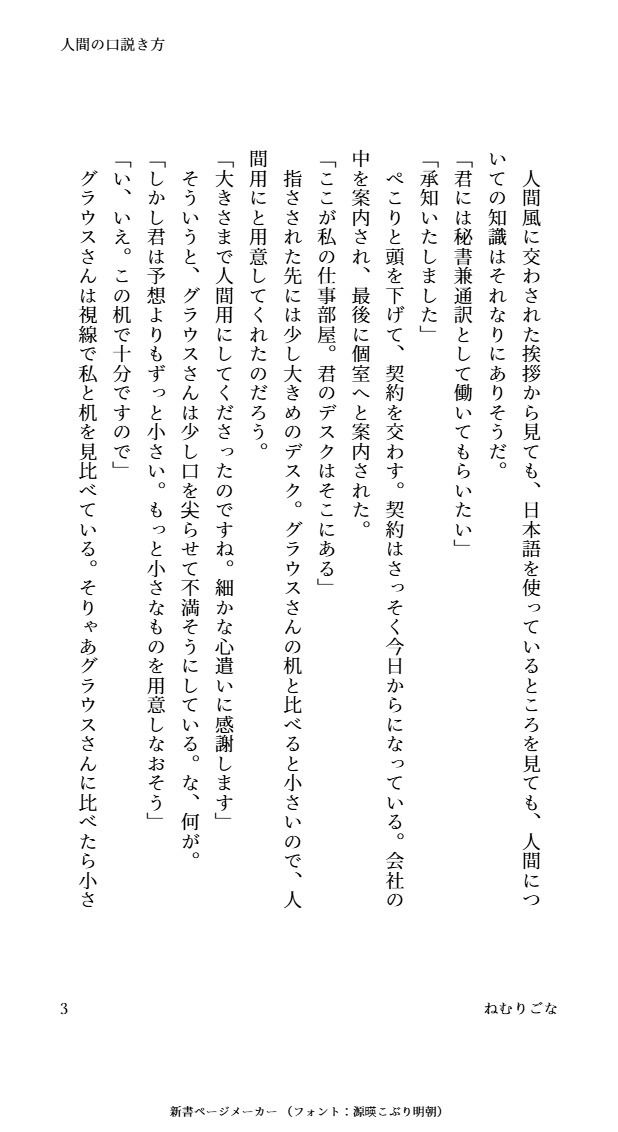 人間の口説き方
　人間風に交わされた挨拶から見ても、日本語を使っているところを見ても、人間につ
いての知識はそれなりにありそうだ。
「君には秘書兼通訳として働いてもらいたい」
「承知いたしました」
　ぺこりと頭を下げて、契約を交わす。契約はさっそく今日からになっている。会社の
中を案内され、最後に個室へと案内された。
「ここが私の仕事部屋。君のデスクはそこにある」
　指さされた先には少し大きめのデスク。グラウスさんの机と比べると小さいので、人
間用にと用意してくれたのだろう。
「大きさまで人間用にしてくださったのですね。細かな心遣いに感謝します」
　そういうと、グラウスさんは少し口を尖らせて不満そうにしている。な、何が。
「しかし君は予想よりもずっと小さい。もっと小さなものを用意しなおそう」
「い、いえ。この机で十分ですので」
　グラウスさんは視線で私と机を見比べている。そりゃあグラウスさんに比べたら小さ
3
ねむりごな
新書ページメーカー（フォント：源暎こぶり明朝）